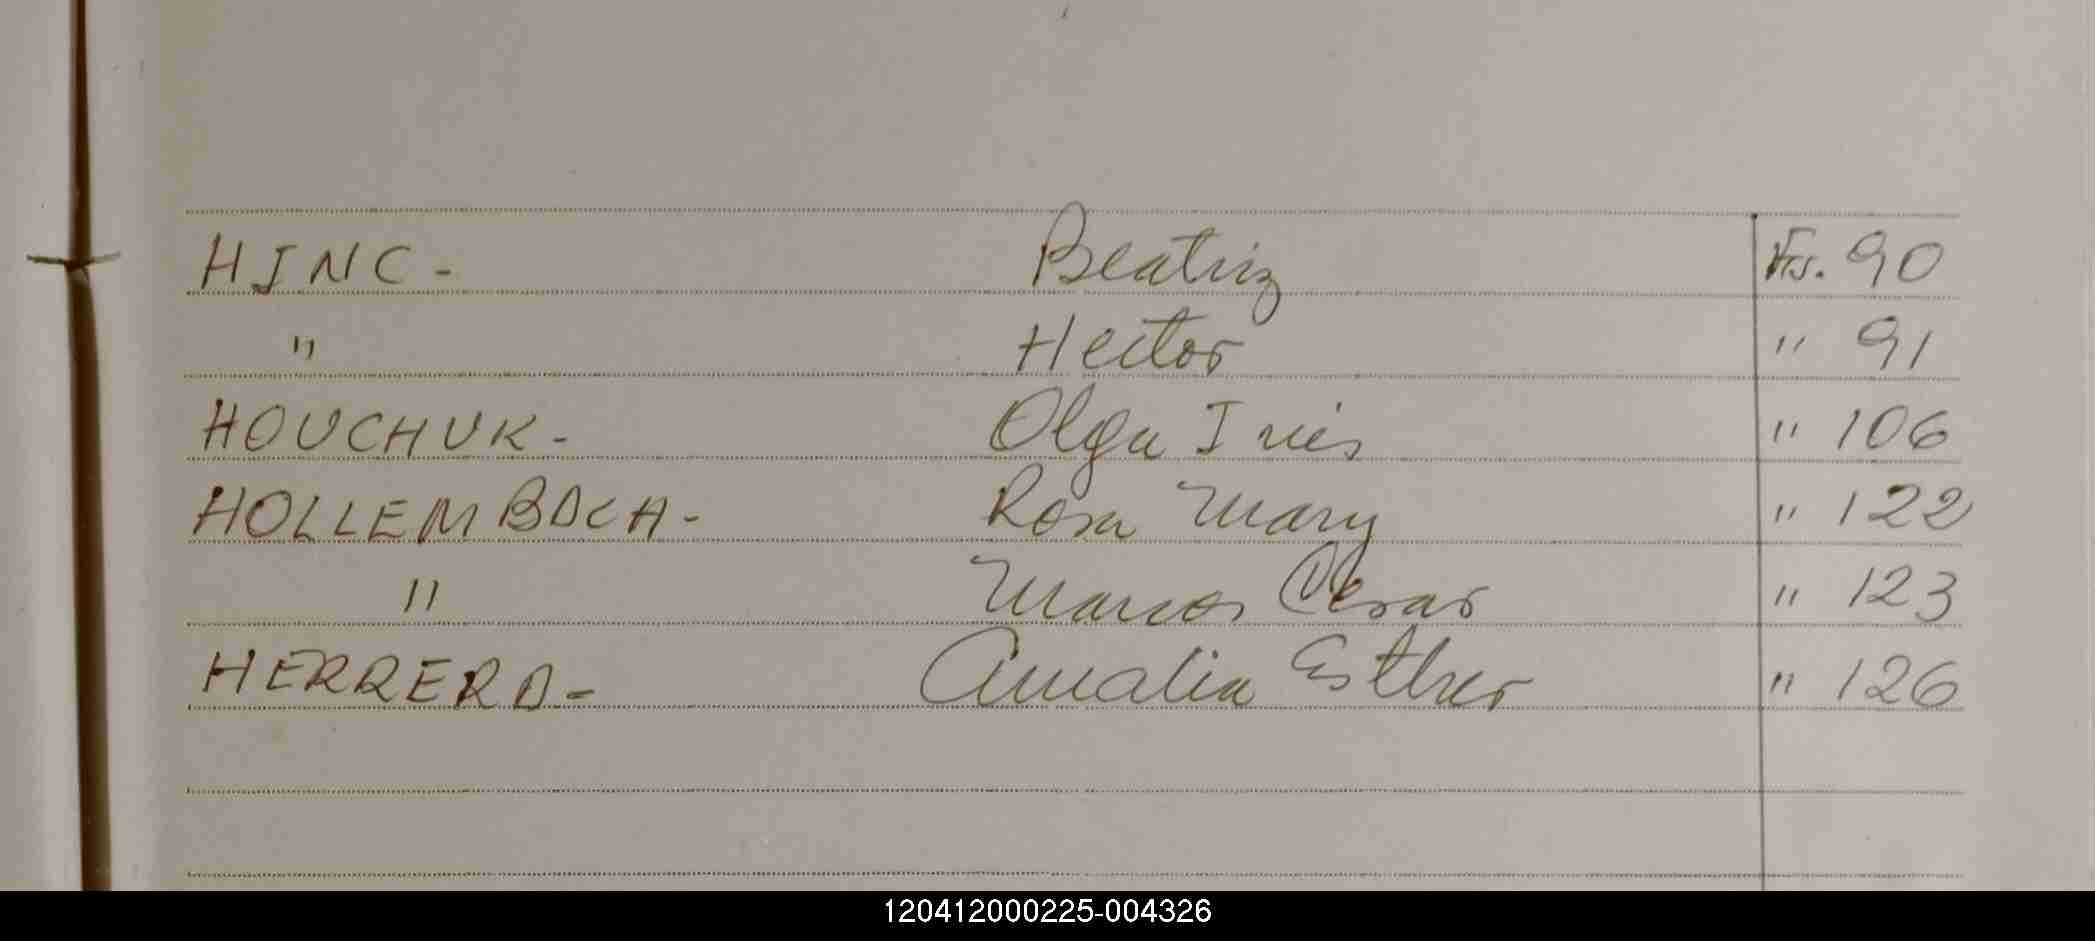 HINC - Beatriz Fs. 90
" Hector " 91
HOUCHUK - Olga Inés " 106
HOLLEMBACH - Rosa Mary " 122
" Marcos Cesar " 123
HERRERA - Amalia Esther " 126
120412000225-004326